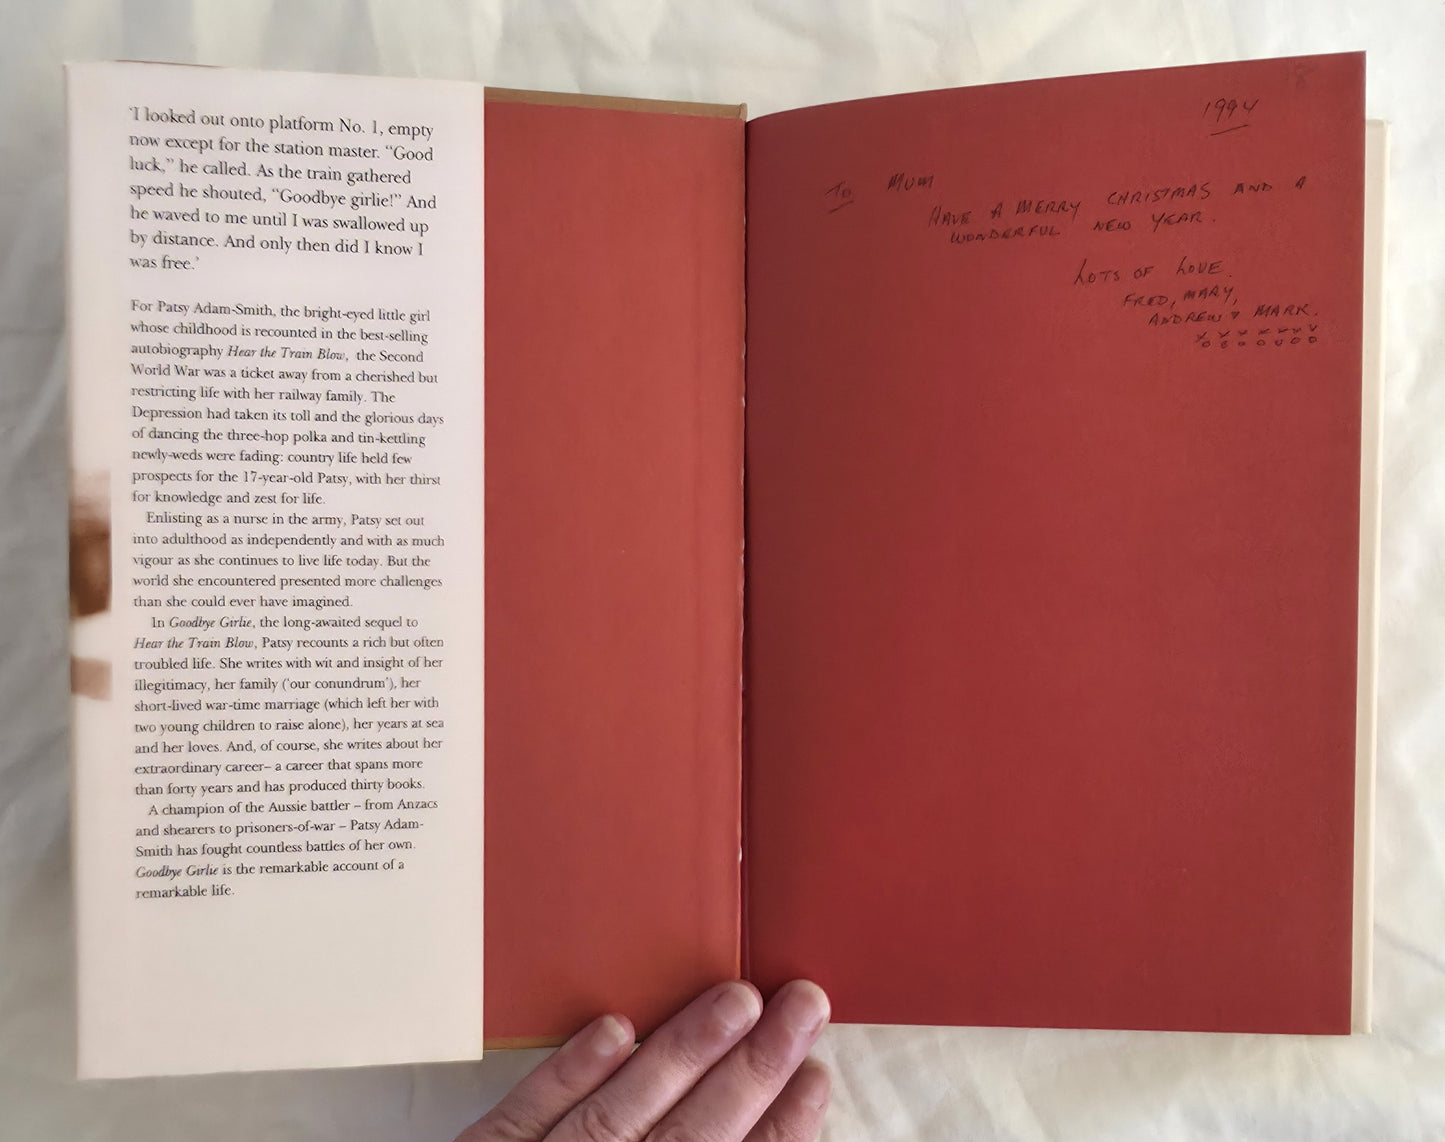 'I looked out onto platform No. 1, empty
now except for the station master. "Good
luck," he called. As the train gathered
speed he shouted, "Goodbye girlie!" And
he waved to me until I was swallowed up
by distance. And only then did I know I
was free.'
For Patsy Adam-Smith, the bright-eyed little girl
whose childhood is recounted in the best-selling
autobiography Hear the Train Blow, the Second
World War was a ticket away from a cherished but
restricting life with her railway family. The
Depression had taken its toll and the glorious days
of dancing the three-hop polka and tin-kettling
newly-weds were fading: country life held few
prospects for the 17-year-old Patsy, with her thirst
for knowledge and zest for life.
Enlisting as a nurse in the army, Patsy set out
into adulthood as independently and with as much
vigour as she continues to live life today. But the
world she encountered presented more challenges
than she could ever have imagined.
In Goodbye Girlie, the long-awaited sequel to
Hear the Train Blow, Patsy recounts a rich but often
troubled life. She writes with wit and insight of her
illegitimacy, her family ('our conundrum'), her
short-lived war-time marriage (which left her with
two young children to raise alone), her years at sea
and her loves. And, of course, she writes about her
extraordinary career– a career that spans more
than forty years and has produced thirty books.
A champion of the Aussie battler – from Anzacs
and shearers to prisoners-of-war – Patsy Adam-
Smith has fought countless battles of her own.
Goodbye Girlie is the remarkable account of a
remarkable life.
1994
TO MUM
HAVE A MERRY CHRISTMAS AND A
WONDERFUL NEW YEAR.
LOTS OF LOVE.
FRED, MARY,
ANDREW & MARK.
X X X X X X X
O O O O O O O